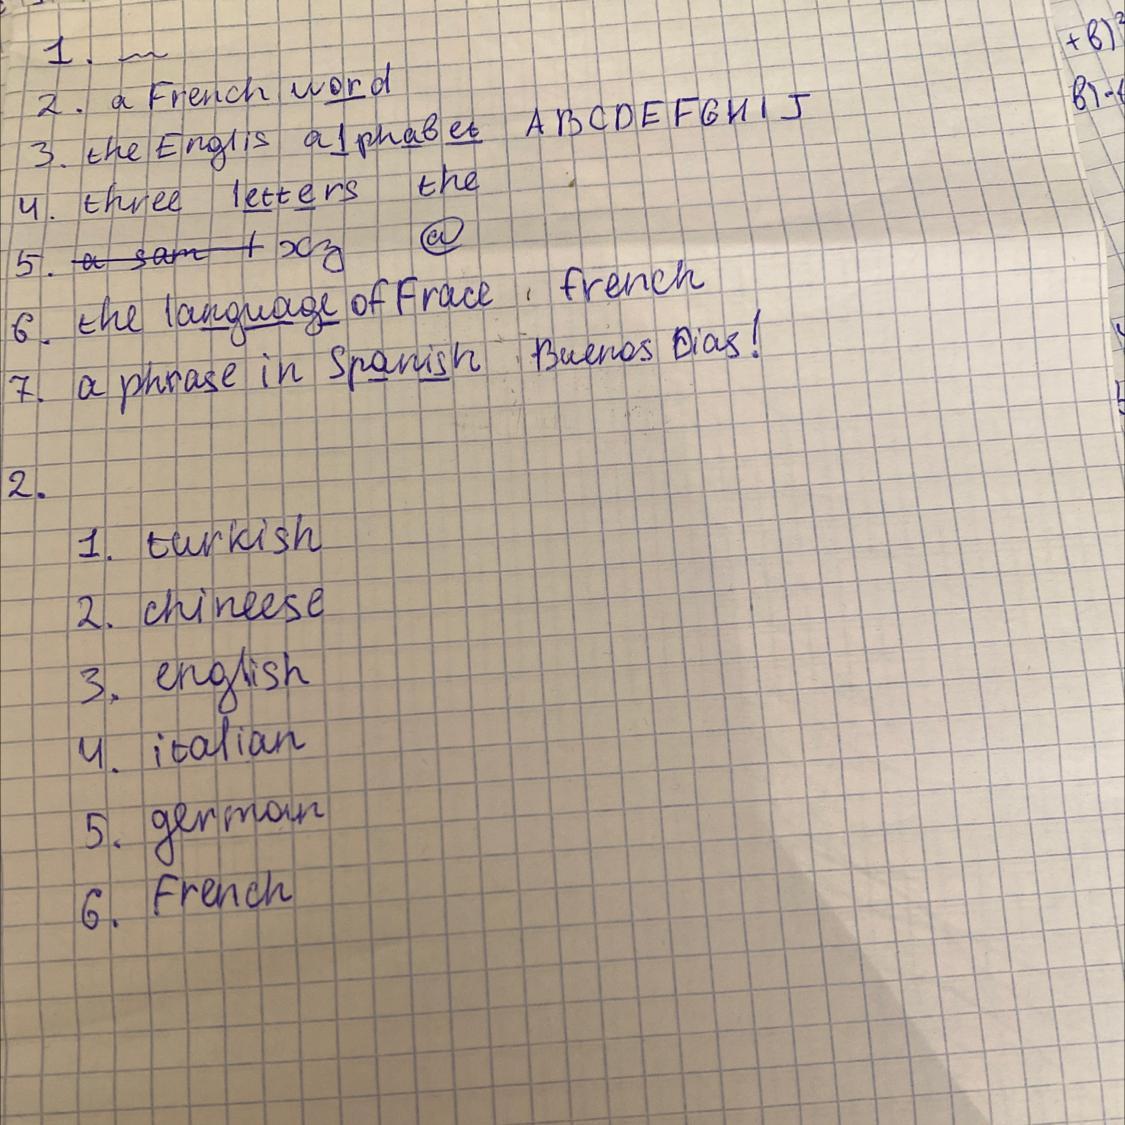 1. ~
2. a French word
3. the Englis alphabet ABCDEFGHIJ
4. three letters the
5. xyz @
6. the language of Frace. french
7. a phrase in Spanish Buenos Dias!
2.
1. turkish
2. chineese
3. english
4. italian
5. german
6. French
+b)²
b)-